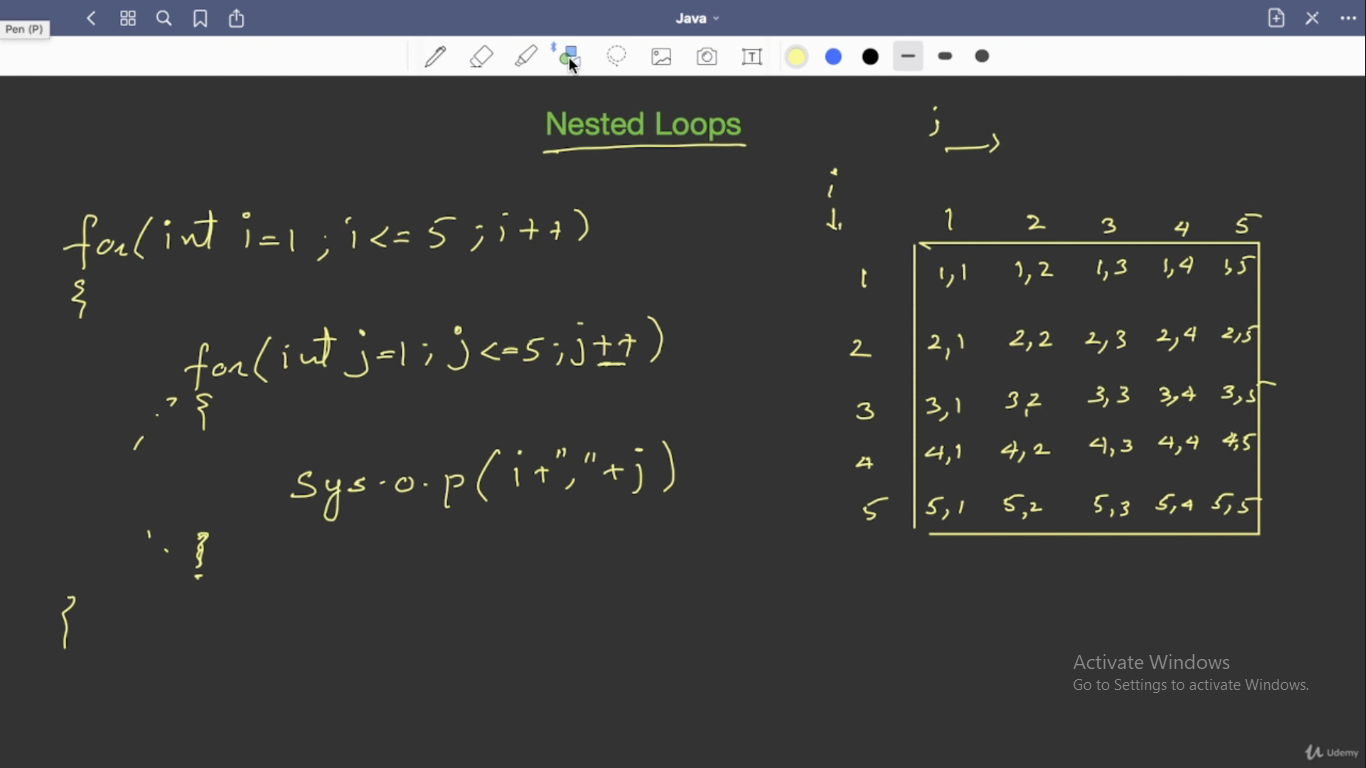 Java
Pen (P)
T
Nested Loops
j
i
for(int i=1 ; i<= 5 ; i++)
{
for(int j=1 ; j<=5 ; j++)
{
Sys.o.p(i+","+j)
}
}
1 2 3 4 5
1 1,1 1,2 1,3 1,4 1,5
2 2,1 2,2 2,3 2,4 2,5
3 3,1 3,2 3,3 3,4 3,5
4 4,1 4,2 4,3 4,4 4,5
5 5,1 5,2 5,3 5,4 5,5
Activate Windows
Go to Settings to activate Windows.
Udemy